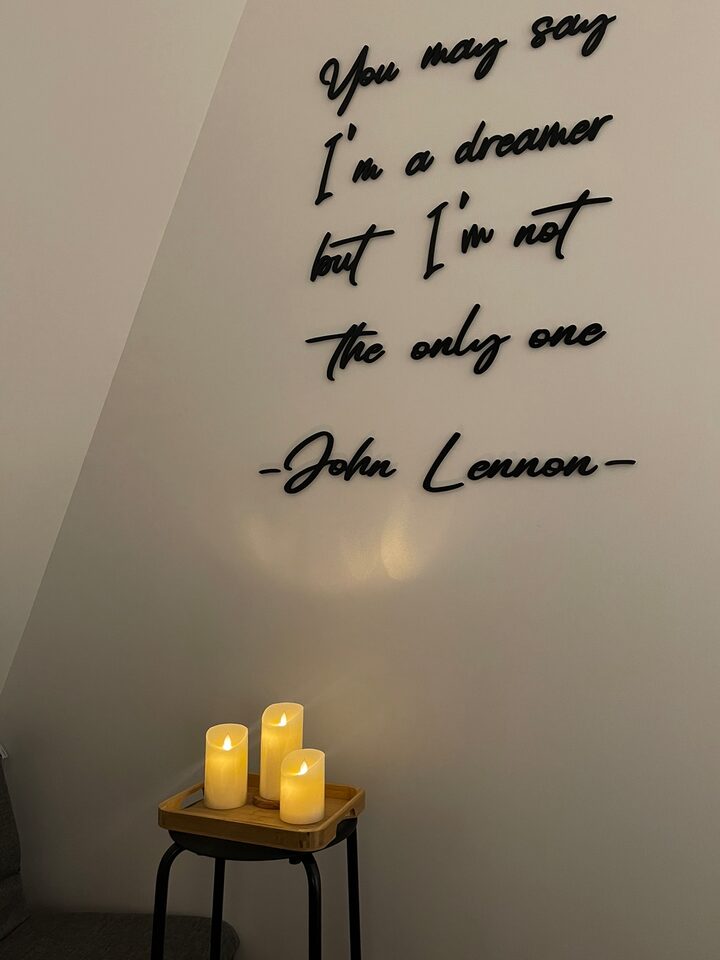 You may say
I'm a dreamer
but I'm not
the only one
-John Lennon-